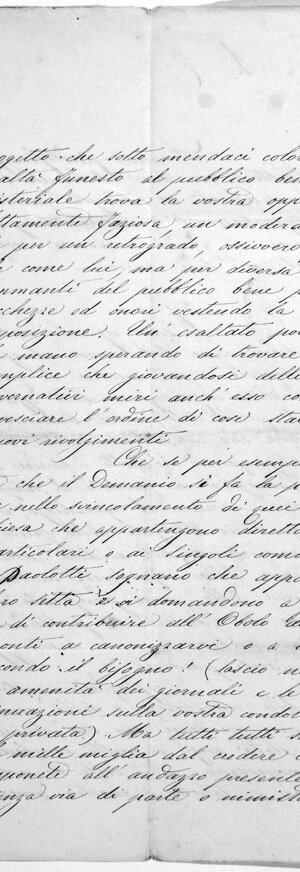 ogetto che sotto mendaci color
altà funesto al pubblico ben
steriale trova la vostra opp
ttamente faziosa, un modera
per un retrogrado, ossivero
come lui, ma per diversa
mmanti del pubblico bene p
cchezze ed onori vestendo la
posizione. Un' esaltato po
mano sperando di trovare
mplice che giovandosi delle
vernativi miri anch' esso co
vesciare l'ordine di cose sta
uovi rivolgimenti.
Che se per esemp
che il Demanio si fa la p
nello svincolamento di quei
iesa che appartengono dirett
articolari o ai singoli com
Paolotti sognano che appr
ro setta e vi domandono a
di contribuire all' Obolo
onti a canonizzarvi o a
condo il bisogno! (lascio
amenità dei giornali e le
nuazioni sulla vostra condot
privata) Ma tutti tutti
mille miglia dal credere
pponete all' andazzo presente
enza via di parte o minist